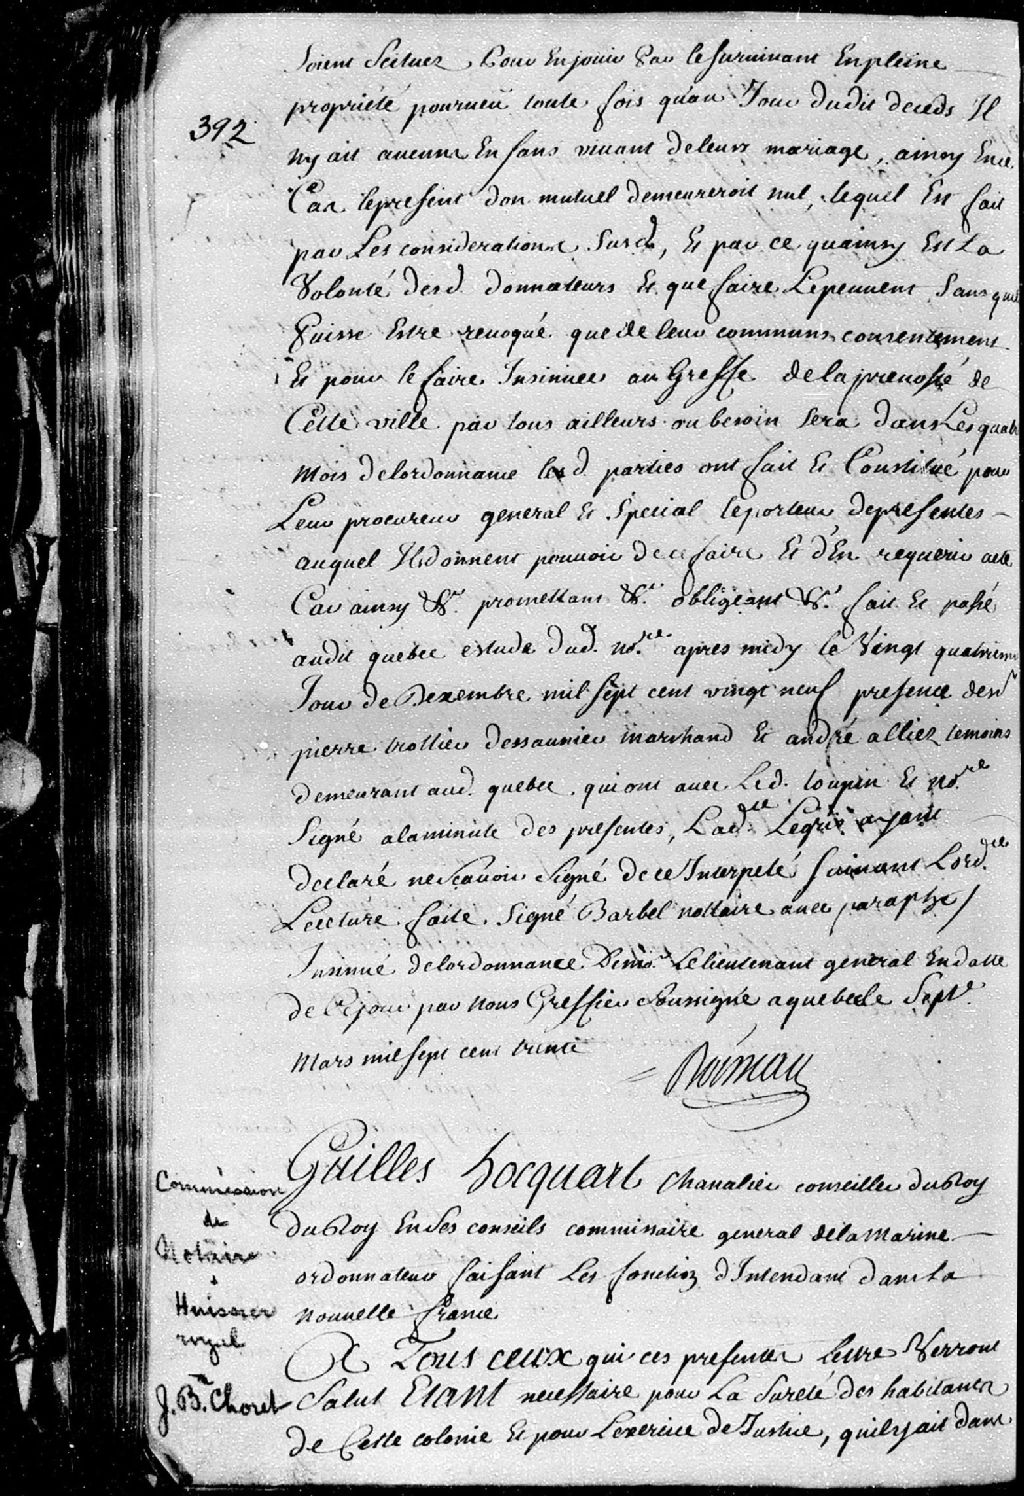 Soient Scituez Pour En jouir Par le Survivant En pleine
propriété pourveu toute fois qu'au Jour dudit deceds Il
392
ny ait aucuns Enfans vivant de leurs mariage, ainsy En ce
Cas le present don mutuel demeureroit nul, lequel Est fait
par Les considerations Susd, Et par ce quainsy Est La
Volonté desd. donnateurs Et que faire Le peuvent Sans quil
Puisse Estre revoqué que de leur communs consentement
Et pour le faire Insinuer au Greffe de la prevosté de
Cette ville par tous ailleurs ou besoin Sera dans Les quatre
mois de lordonnance lesd parties ont fait Et Constitué pour
Leur procureur general Et Special le porteur de presentes
auquel Ils donnent pouvoir de ce faire Et d'En requerir acte
Car ainsy &c. promettans &c. obligeant &c. fait Et passé
audit quebec estude dud. no.re apres midy le Vingt quatrieme
Jour de Dexembre mil Sept cent vingt neuf presence des Srs
pierre trottier dessaunier marchand Et andré alliez temoins
demeurant aud. quebec qui ont avec Led. toupin Et no.re
Signé a la minute des presentes, Lad.te Legris ayant
declaré ne Scavoir Signé de ce Interpelé Suivant Lord.ce
Lecture faite. Signé Barbel nottaire avec paraphe /
Insinué de lordonnance De mr. Le lieutenant general En datte
de Ce jour par nous Greffier Soussigné a quebec le Sept.e
Mars mil Sept cent trente
Rouman
Commission
de
Notaire
&
Huissier
royal
J. Bte. Choret
Guilles hocquart Chavalier conseiller du Roy
du Roy En Ses conseils commissaire general de la marine
ordonnateur faisant Les fonction d'Intendant dans La
nouvelle france
A Tous ceux qui ces presentes Lettre Verront
Salut Etant necessaire pour La Sureté des habitants
de Cette colonie Et pour Lexercice de Justice, quil y ait dans